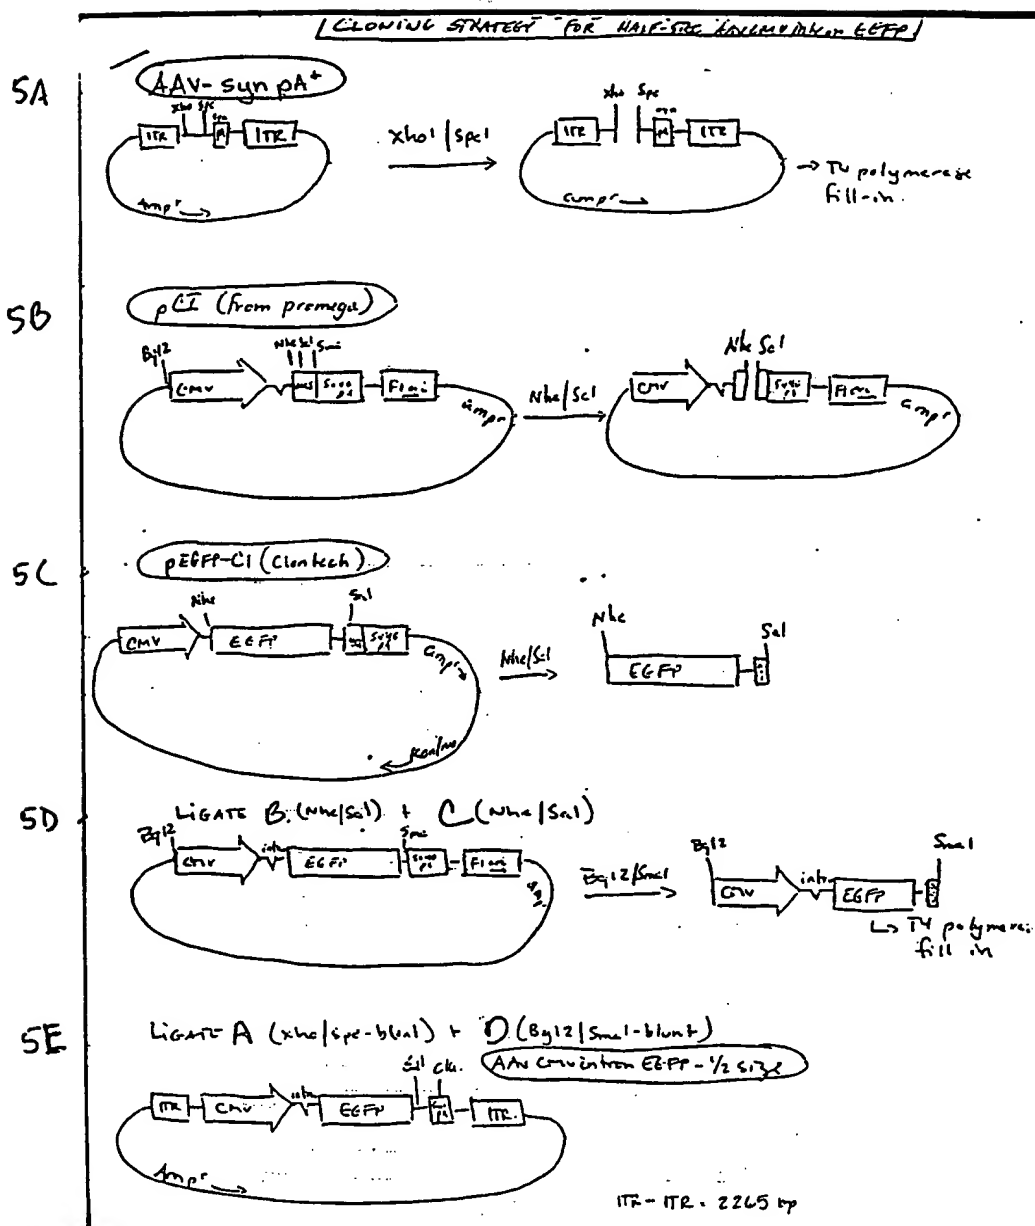 CLONING STRATEGY FOR HALF-SIZE EGFP
5A
AAV-syn pA+
Xho Spe
ITR ITR
Ampr
Xho1/Spe1
Xho Spe
ITR ITR
ampr
→ T4 polymerase
fill-in.
5B
pCI (from promega)
Bgl2
Nhe Sal Sma
CMV
F1 ori
ampr
Nhe/Sal
Nhe Sal
CMV
F1 ori
ampr
5C
pEGFP-C1 (Clontech)
Nhe
Sal
CMV EGFP
SV40
pA
ampr
Nhe/Sal
Nhe
Sal
EGFP
5D
LIGATE B. (Nhe/Sal) + C (Nhe/Sal)
Bgl2
Sma
CMV intr EGFP
F1 ori
Bgl2/Sma1
Bgl2
Sma1
CMV intr. EGFP
↳ T4 polymerase
fill in
5E
LIGATE A (Xho/Spe-blunt) + D. (Bgl2/Sma1-blunt)
AAV CMV intron EGFP - 1/2 size
Sal Cla.
ITR CMV intr EGFP
ITR.
Ampr
ITR - ITR = 2265 bp